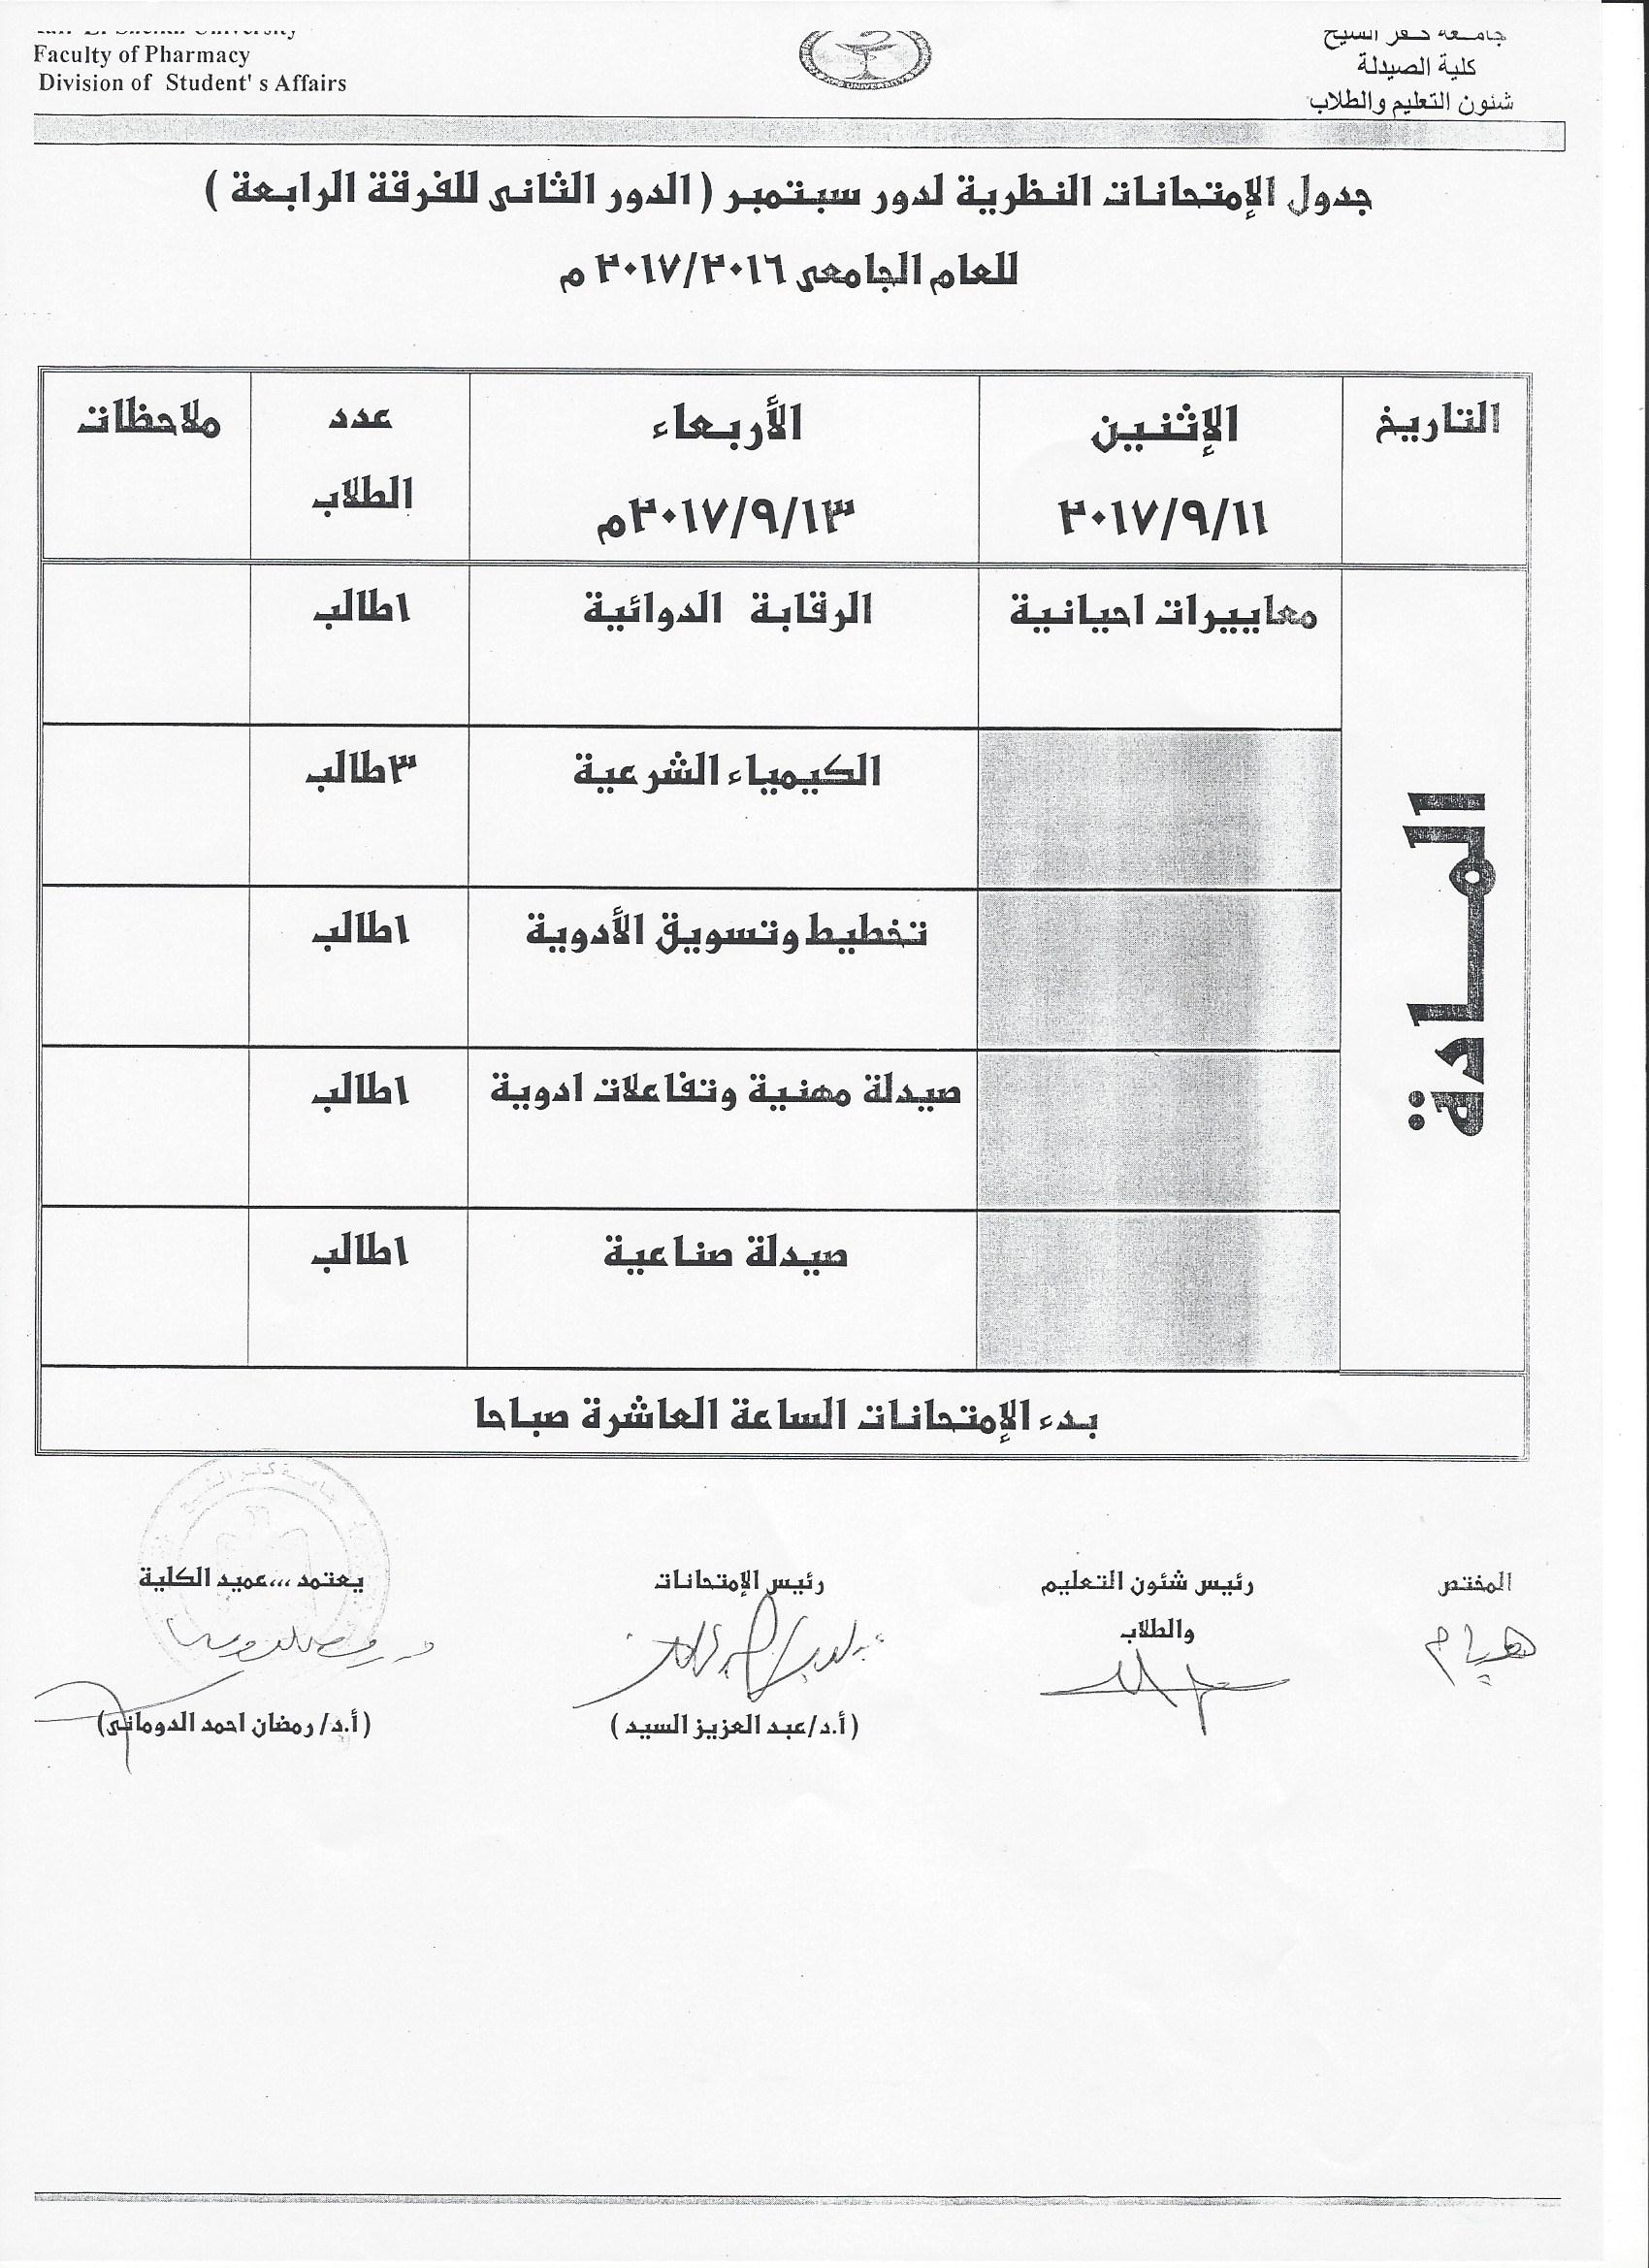 Faculty of Pharmacy
Division of Student' s Affairs
UNIVERSITY
جامعة كفر الشيخ
كلية الصيدلة
شئون التعليم والطلاب
جدول الإمتحانات النظرية لدور سبتمبر ( الدور الثانى للفرقة الرابعة )
للعام الجامعى ٢٠١٧/٢٠١٦ م
التاريخ
الإثنين
٢٠١٧/٩/١١
الأربعاء
٢٠١٧/٩/١٣م
عدد
الطلاب
ملاحظات
المــادة
معاييرات احيانية
الرقابة الدوائية
١طالب
الكيمياء الشرعية
٣طالب
تخطيط وتسويق الأدوية
١طالب
صيدلة مهنية وتفاعلات ادوية
١طالب
صيدلة صناعية
١طالب
بدء الإمتحانات الساعة العاشرة صباحا
المختص
هيام
رئيس شئون التعليم
والطلاب
رئيس الإمتحانات
(أ.د/عبد العزيز السيد )
يعتمد ،،،عميد الكلية
(أ.د/ رمضان احمد الدومانى)